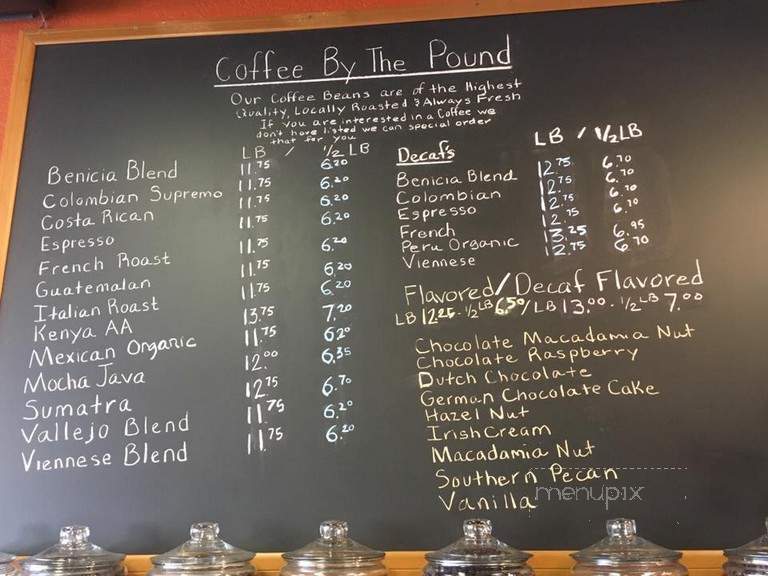 Coffee By The Pound
Our Coffee Beans are of the Highest
Quality, Locally Roasted & Always Fresh
If you are interested in a Coffee we
don't have listed we can special order
that for you
LB / 1/2 LB
Benicia Blend 11.75 6.20
Colombian Supremo 11.75 6.20
Costa Rican 11.75 6.20
Espresso 11.75 6.20
French Roast 11.75 6.20
Guatemalan 11.75 6.20
Italian Roast 11.75 6.20
Kenya AA 13.75 7.20
Mexican Organic 11.75 6.20
Mocha Java 12.00 6.35
Sumatra 12.75 6.70
Vallejo Blend 11.75 6.20
Viennese Blend 11.75 6.20
Decafs LB / 1/2 LB
Benicia Blend 12.75 6.70
Colombian 12.75 6.70
Espresso 12.75 6.70
French 12.75 6.70
Peru Organic 13.25 6.95
Viennese 12.75 6.70
Flavored/Decaf Flavored
LB 12.25 - 1/2 LB 6.50/LB 13.00 - 1/2 LB 7.00
Chocolate Macadamia Nut
Chocolate Raspberry
Dutch Chocolate
German Chocolate Cake
Hazel Nut
Irish Cream
Macadamia Nut
Southern Pecan
Vanilla
menupix